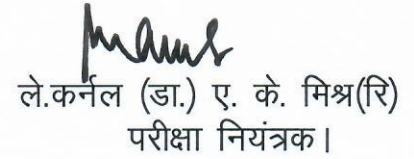 ले.कर्नल (डा.) ए. के. मिश्र(रि)
परीक्षा नियंत्रक।